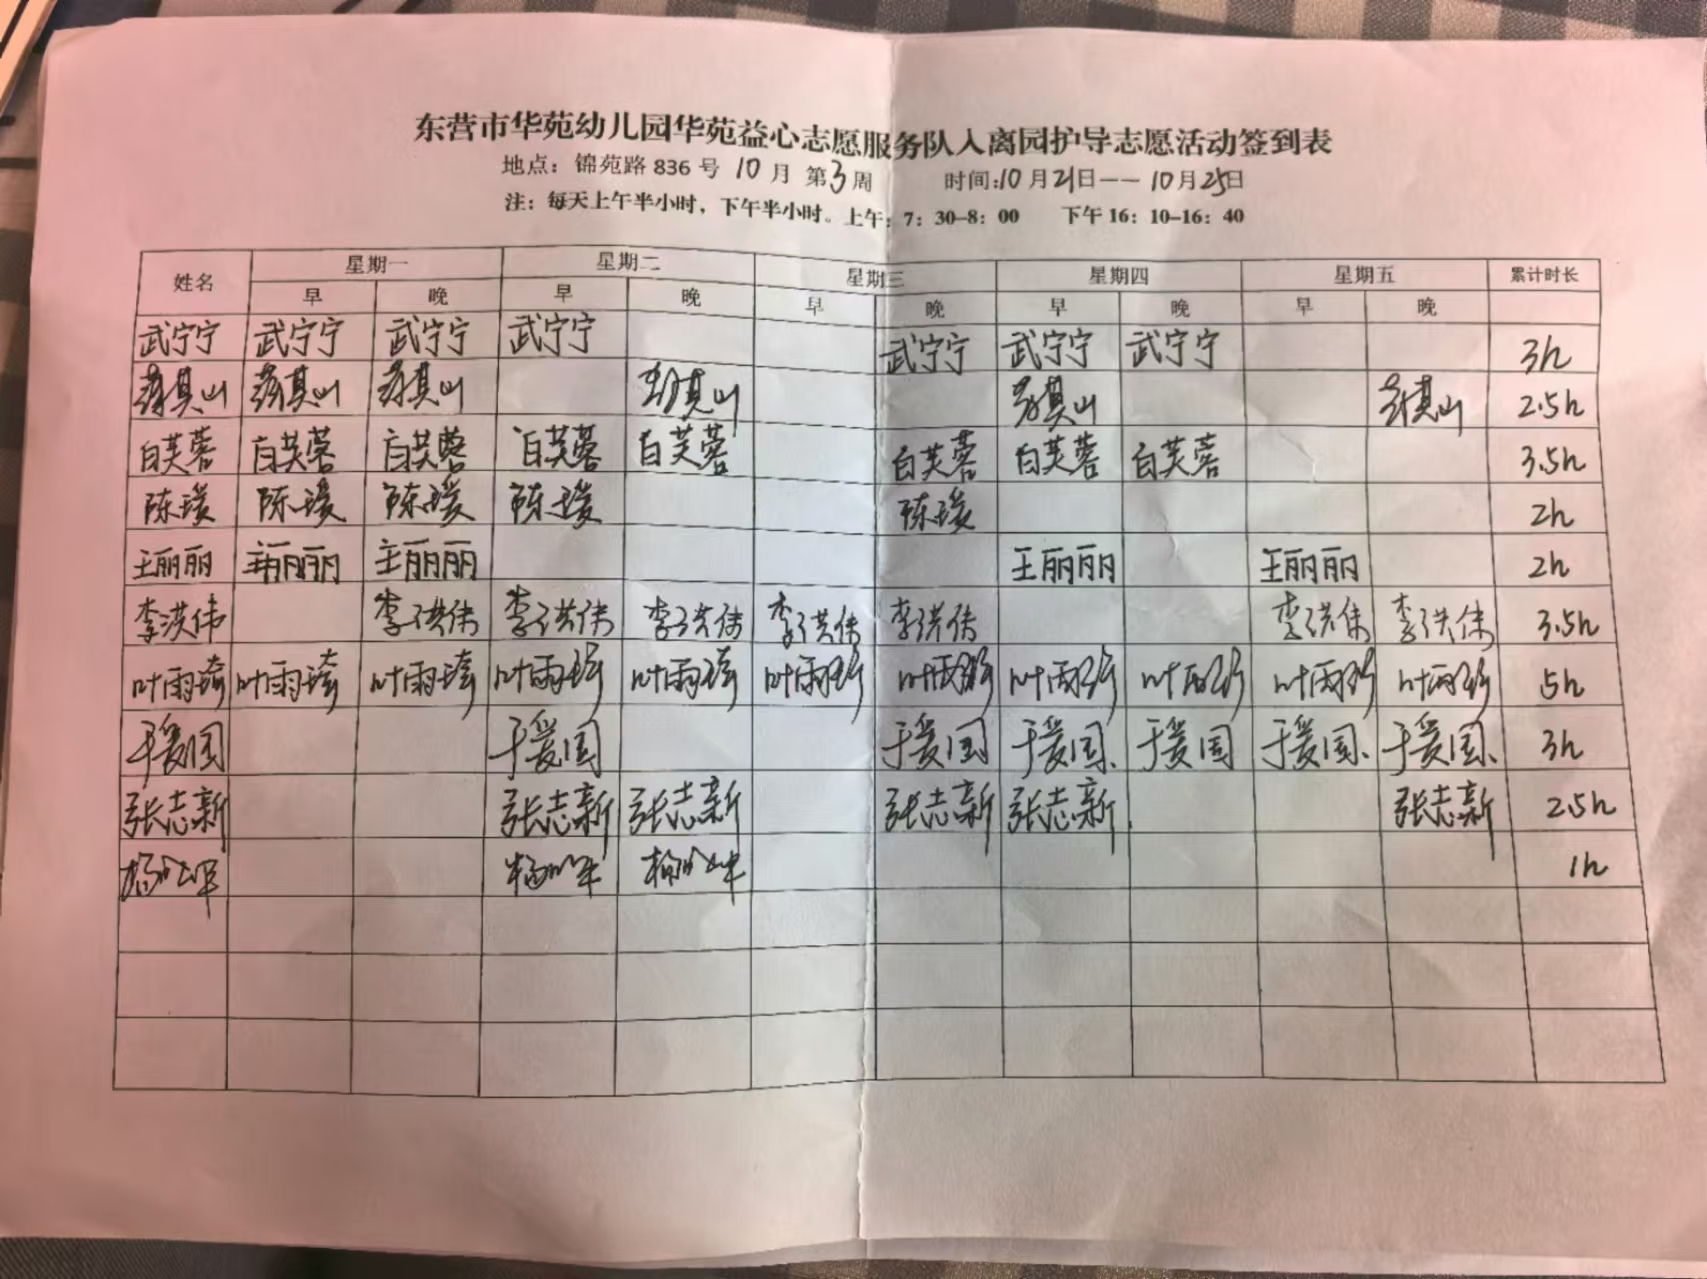 东营市华苑幼儿园华苑益心志愿服务队入离园护导志愿活动签到表
地点：锦苑路836号 10月 第3周 时间:10月21日——10月25日
注：每天上午半小时，下午半小时。上午：7：30-8：00 下午16：10-16：40
姓名 星期一 星期二 星期三 星期四 星期五 累计时长
早 晚 早 晚 早 晚 早 晚 早 晚
武宁宁 武宁宁 武宁宁 武宁宁 武宁宁 武宁宁 武宁宁 3h
其山 其山 其山 其山 其山 其山 2.5h
白芙蓉 白芙蓉 白芙蓉 白芙蓉 白芙蓉 白芙蓉 白芙蓉 白芙蓉 3.5h
陈瑷 陈瑷 陈瑷 陈瑷 陈瑷 2h
王丽丽 王丽丽 王丽丽 王丽丽 王丽丽 2h
李洪伟 李洪伟 李洪伟 李洪伟 李洪伟 李洪伟 李洪伟 李洪伟 3.5h
叶雨琦 叶雨琦 叶雨琦 叶雨琦 叶雨琦 叶雨琦 叶雨琦 叶雨琦 叶雨琦 叶雨琦 叶雨琦 5h
于爱国 于爱国 于爱国 于爱国 于爱国 于爱国 于爱国 3h
张志新 张志新 张志新 张志新 张志新 张志新 2.5h
杨 杨 杨 1h